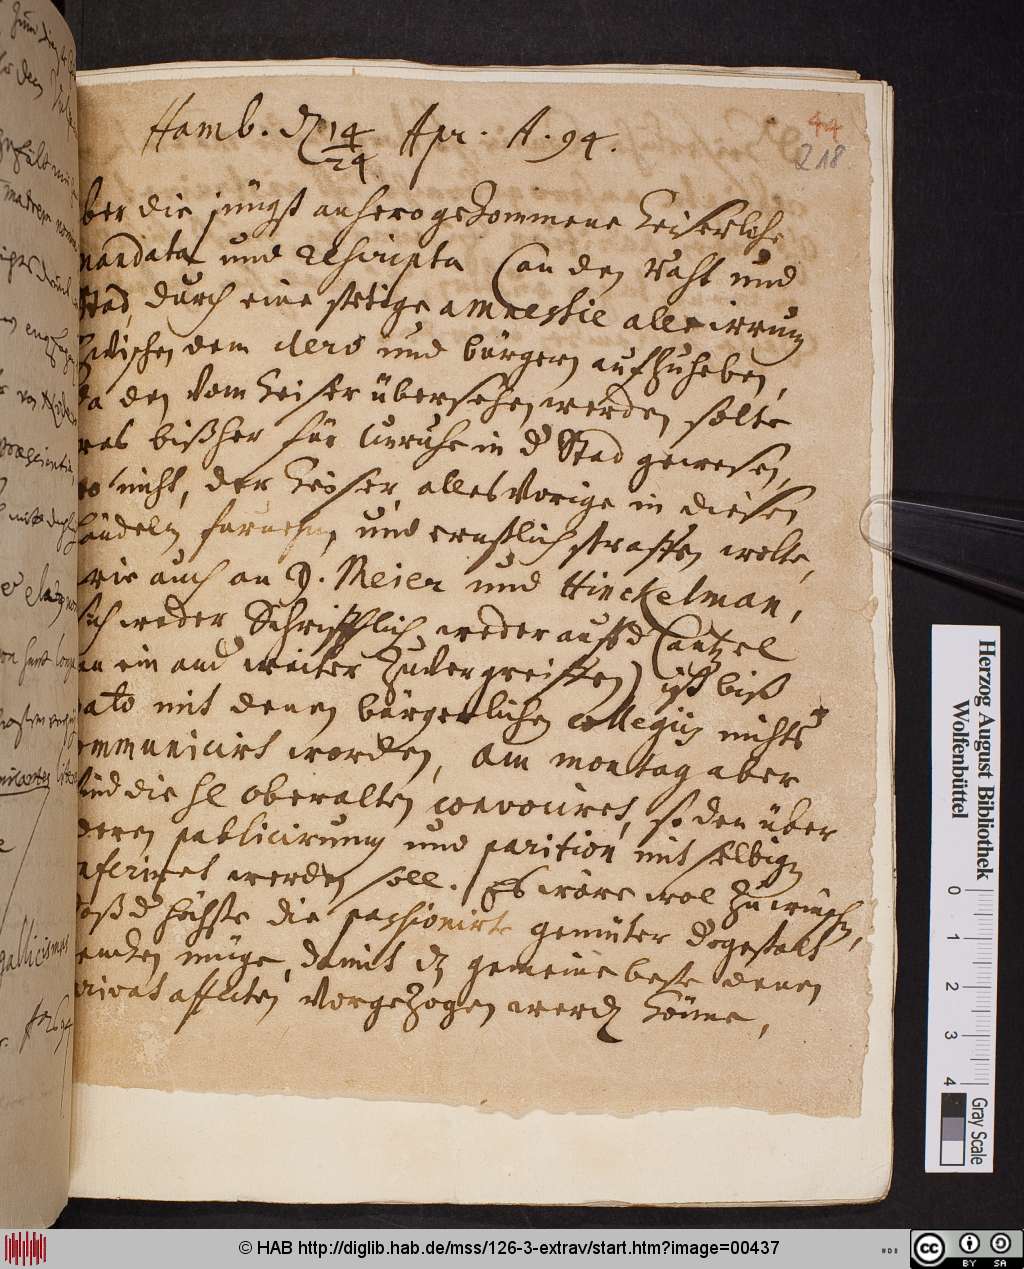 Hamb. d 14/24 Apr. A. 94.
44
218
ber die jüngst anhero gekommene Keiserlche
mandata und rescripta (an den Raht und
Stad, durch eine stetige amnestie alle irrung
Zwischen dem clero und bürgern aufzuheben,
da den vom Keiser übersehen werden solte
was bißher für Unruhe in d Stad gewesen,
wo nicht, der Keiser alles Vorige in diesen
händeln, und ernstlich straffen wolte,
wie auch an D. Meier und Hinckelman,
sich weder Schrifftlich weder auff d Cantzel
an ein and weiter Zuvergreiffen) ist biß
dato mit denen bürgerlichen collegiis nichts
communicirt worden, Am montag aber
sind die Hl Oberalten convociret, so den über
deren publicirung und parition mit selbign
werden soll. Es wäre wol zu wünschen,
daß d höchste die passionirte gemüter dergestalt
möge, damit dz gemeine beste denen
privat affecten vorgezogen werdn könne,
Herzog August Bibliothek
Wolfenbüttel
0 1 2 3 4
Gray Scale
© HAB http://diglib.hab.de/mss/126-3-extrav/start.htm?image=00437
cc BY SA